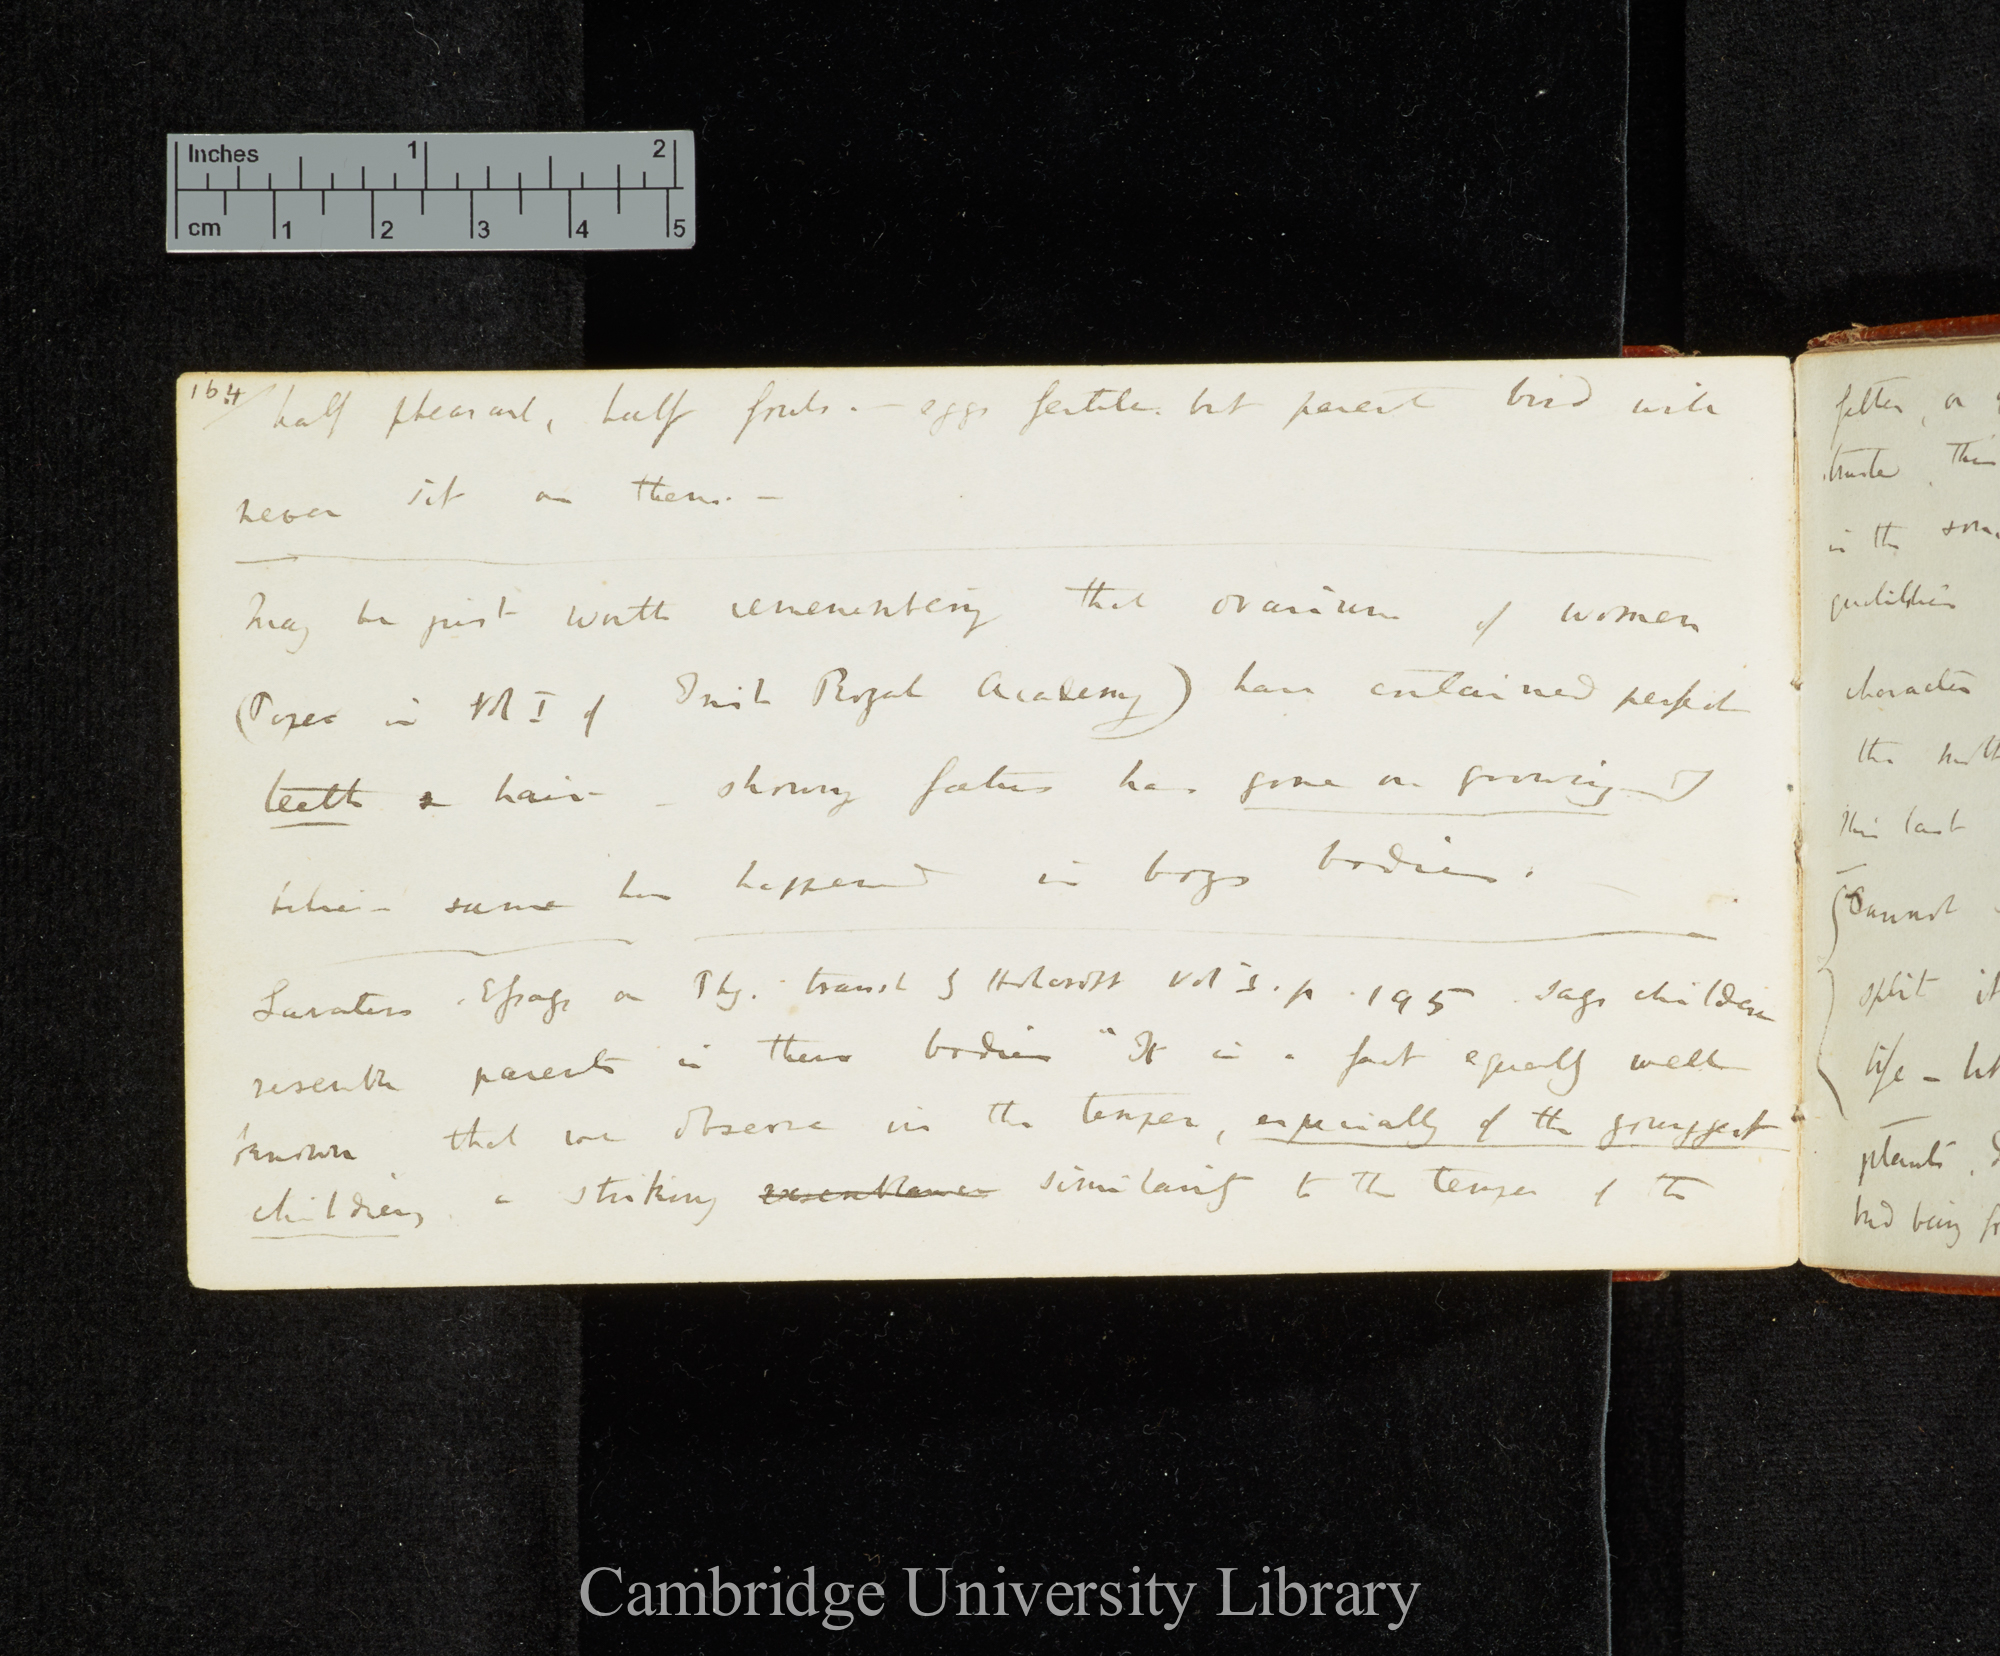 Inches 1 2
cm 1 2 3 4 5
164
half pheasant, half fowls.— eggs fertile. but parent bird will
never sit on them.—
May be just worth remembering that ovarium of women
(Paper in Vol I of Irish Royal Academy) have contained perfect
teeth & hair — showing foetus has gone on growing — I
believe same has happened in boys bodies.
Lavaters Essays on Phy. transl by Holcroft Vol I. p. 195 says children
resemble parents in there bodies "It is a fact equally well
known that we observe in the temper, especially of the youngest
children, a striking resemblance similarity to the temper of the
in the
this last
Cannot
split it
life —
plants,
bud being
Cambridge University Library